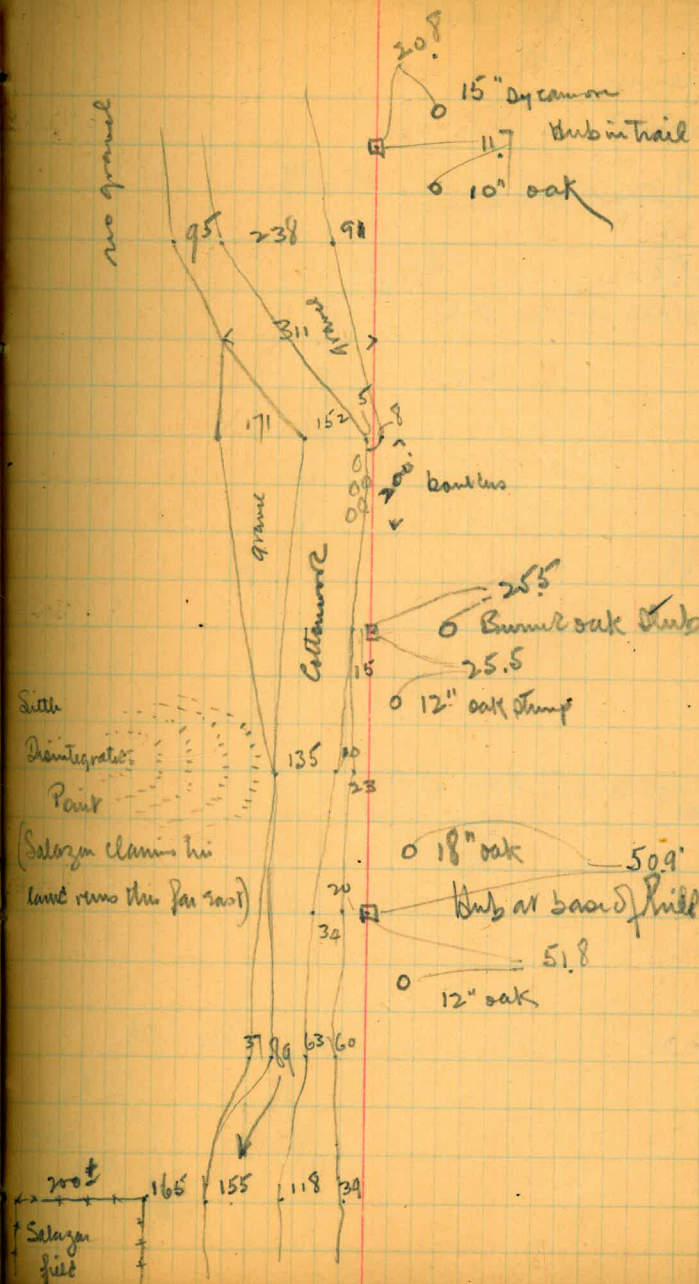 20.8
15" Sycamore
Hub in Trail
11.7
10" oak
no gravel
95 238 91
311
gravel
5
8
171 152
200'
boulders
gravel
Cottonwood
25.5
Burned oak Stub
15
25.5
12" oak stump
Little
Disintegrated
Point
(Salazar claims his
land runs this far east)
135 10
23
18" oak
50.9'
20
Hub at base of hill
34
51.8
12" oak
37 89 63 60
200±
165 155 118 39
Salazar
field